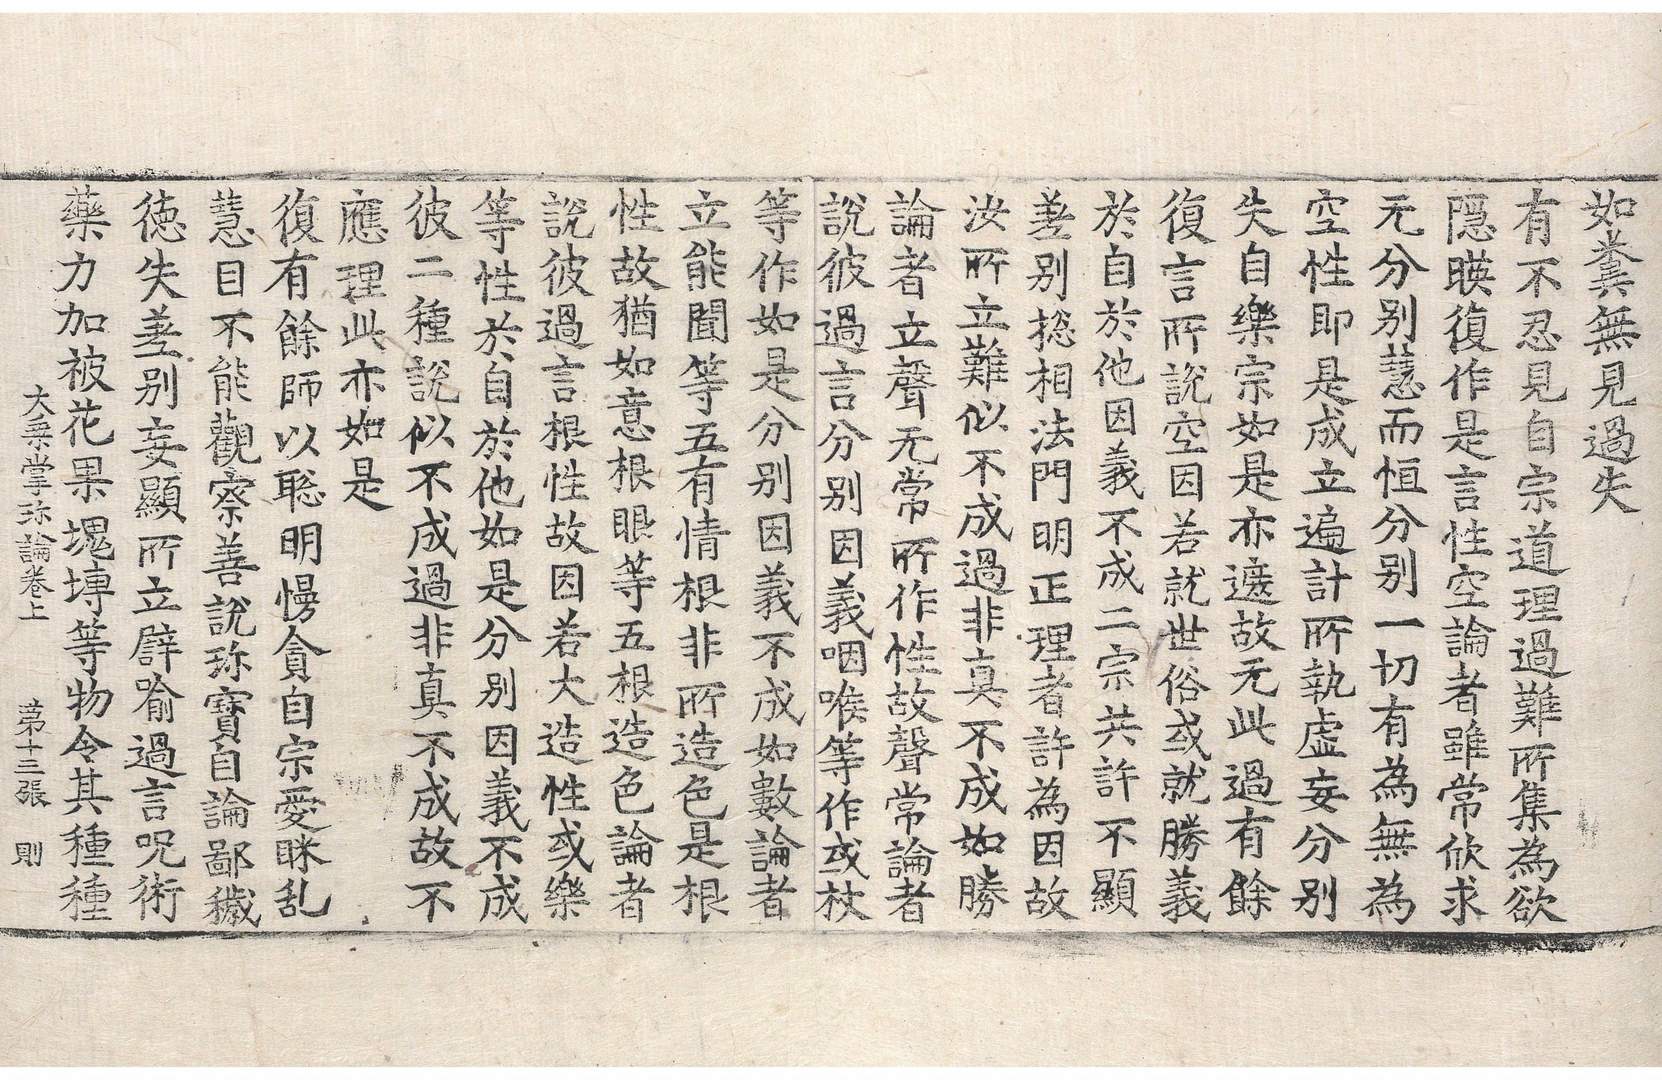 如糞無見過失
有不忍見自宗道理過難所集為欲
隱暎復作是言性空論者雖常欣求
无分別慧而恒分別一切有為無為
空性即是成立遍計所執虛妄分別
失自樂宗如是亦遮故无此過有餘
復言所說空因若就世俗或就勝義
於自於他因義不成二宗共許不顯
差別揔相法門明正理者許為因故
汝所立難似不成過非真不成如勝
論者立聲无常所作性故聲常論者
說彼過言分別因義咽喉等作或杖
等作如是分別因義不成如數論者
立能聞等五有情根非所造色是根
性故猶如意根眼等五根造色論者
說彼過言根性故因若大造性或樂
等性於自於他如是分別因義不成
彼二種說似不成過非真不成故不
應理此亦如是
復有餘師以聡明慢貪自宗愛眯乱
慧目不能觀察善說珎寶自論鄙穢
徳失差別妄顯所立譬喻過言呪術
藥力加被花果塊塼等物令其種種
大乗掌珎論卷上 苐十三張 則